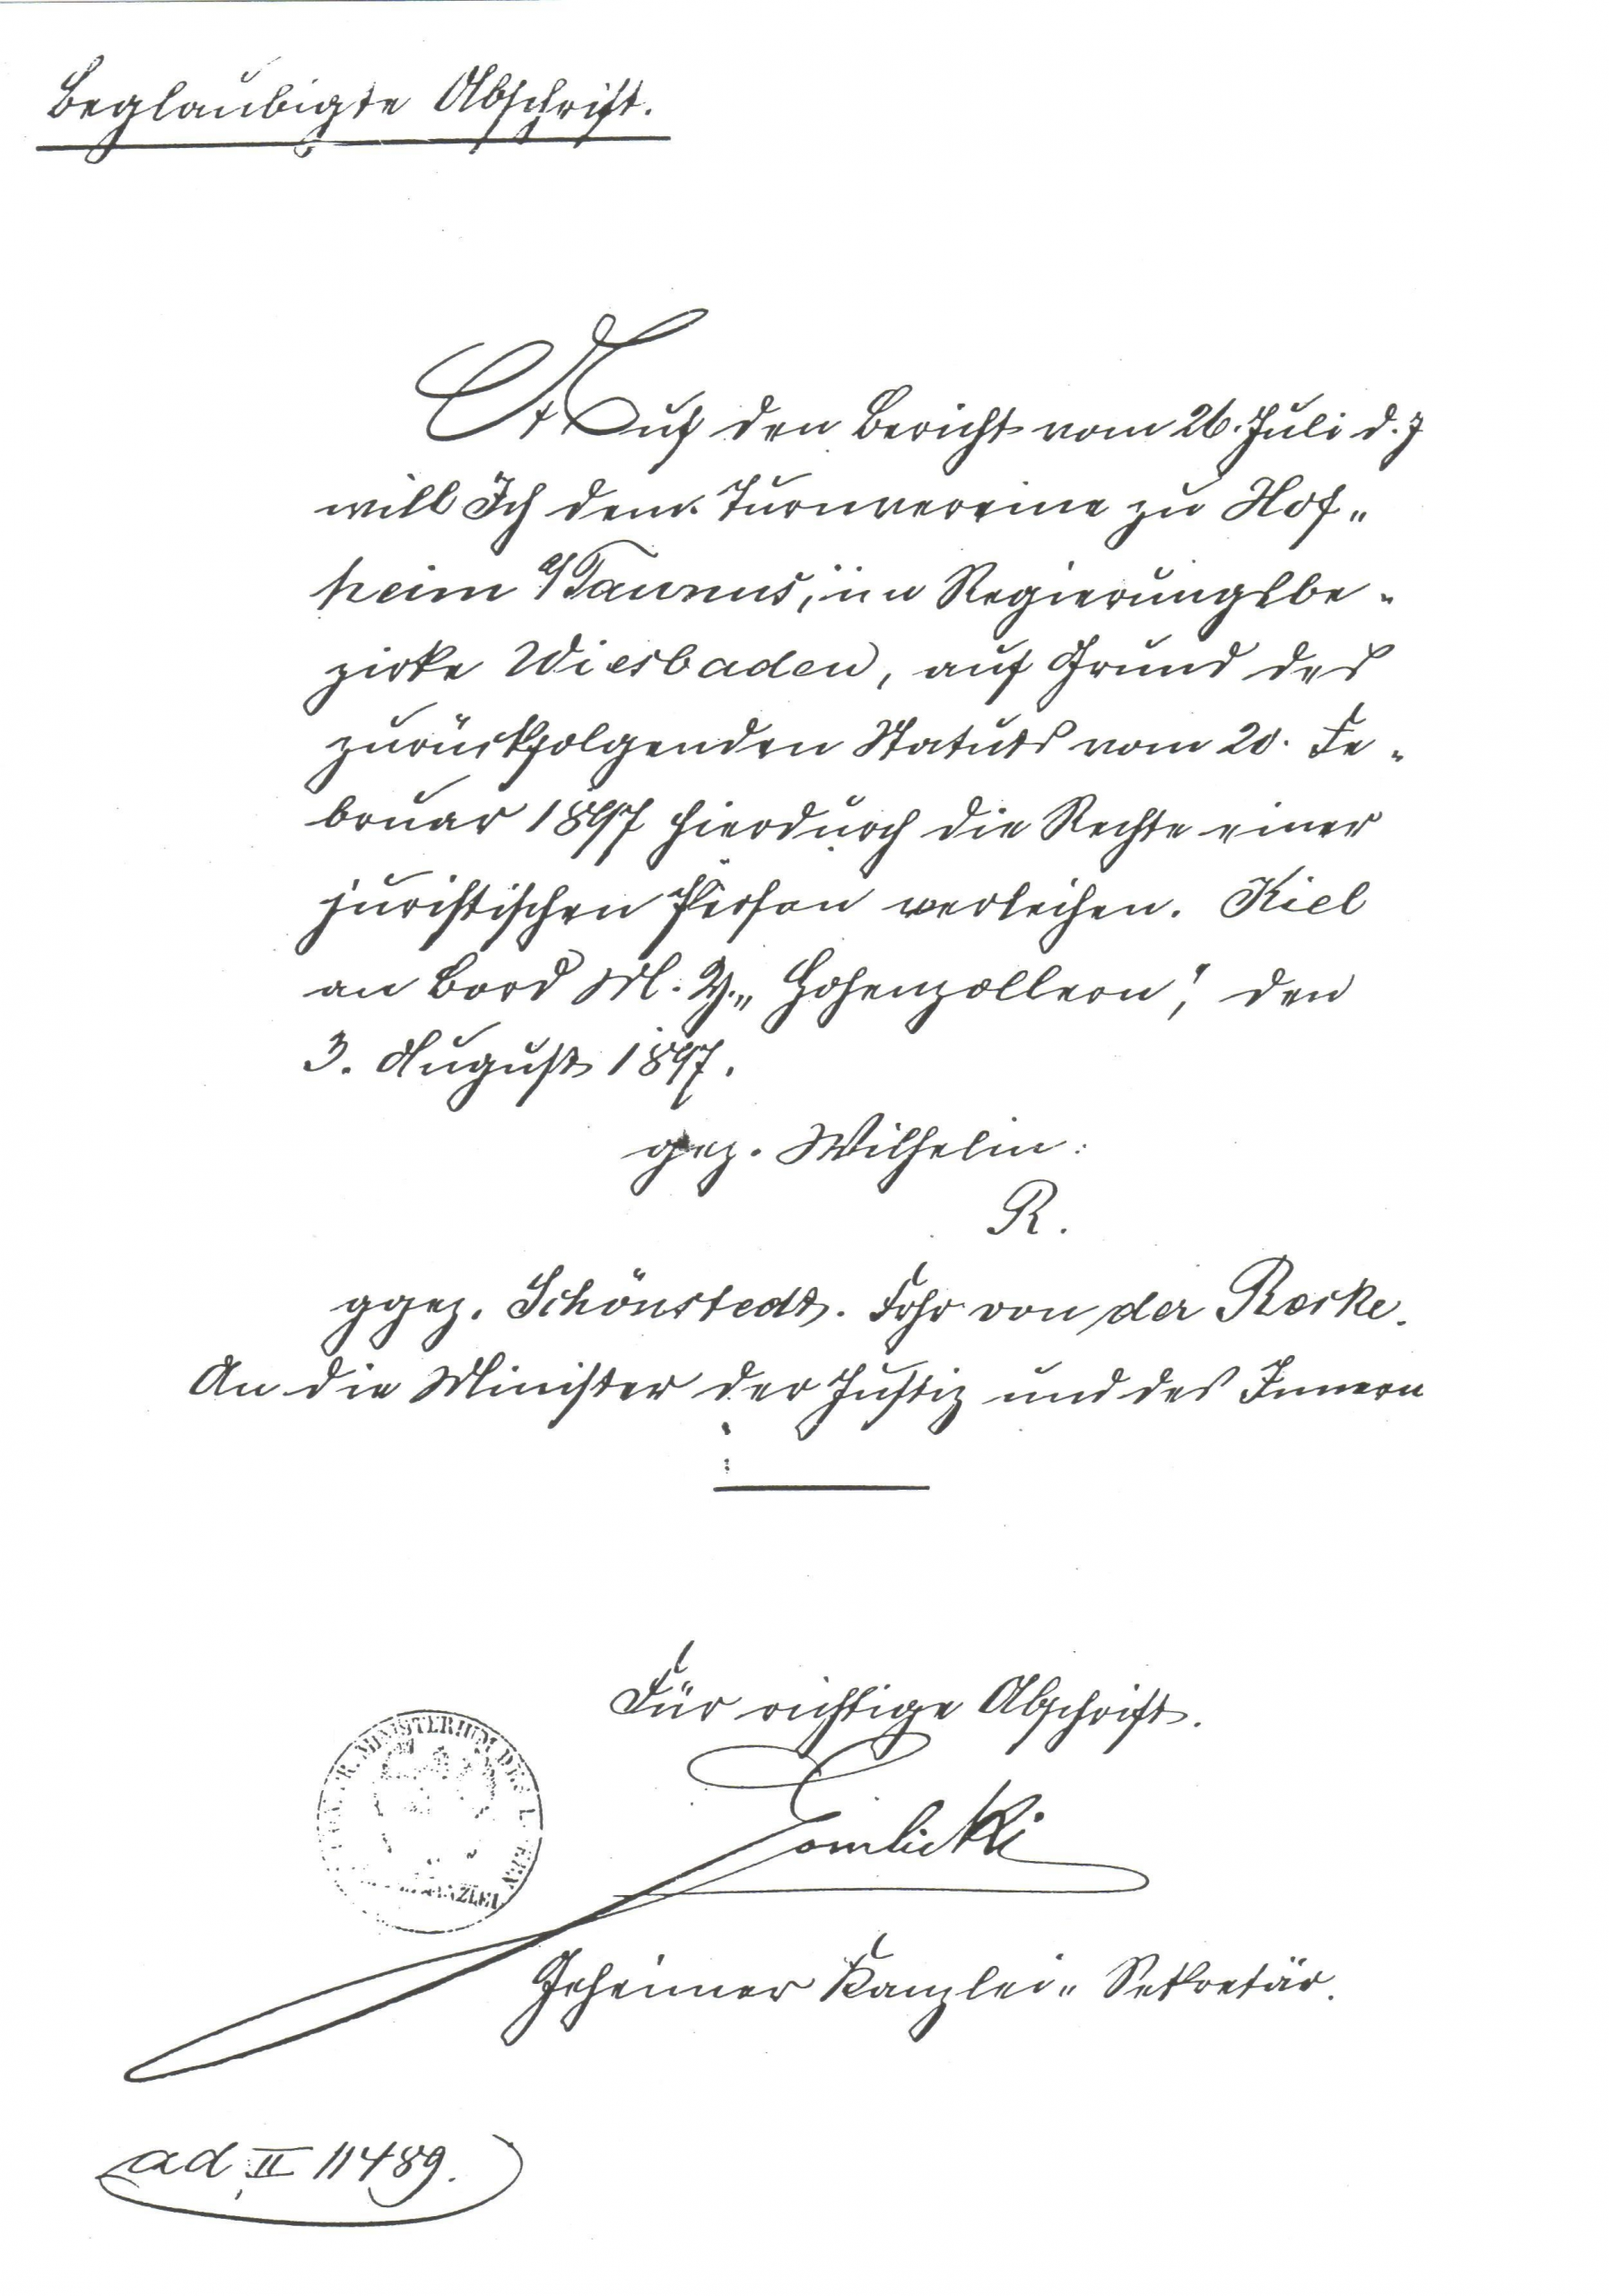 Beglaubigte Abschrift.
Auf den Bericht vom 26. Juli d. J
will Ich dem Turnvereine zu Hof„
heim a/Taunus, im Regierungsbe-
zirke Wiesbaden, auf Grund des
zurückfolgenden Statuts vom 20. Fe-
bruar 1897 hierdurch die Rechte einer
juristischen Person verleihen. Kiel
an Bord M. Y. „Hohenzollern", den
3. August 1897.
gez. Wilhelm.
R.
ggez. Schönstedt. Frhr von der Recke.
An die Minister der Justiz und des Innern
Für richtige Abschrift.
R. MINISTERIUM DES
Geheimer Kanzlei„ Sekretär.
ad II 11489.